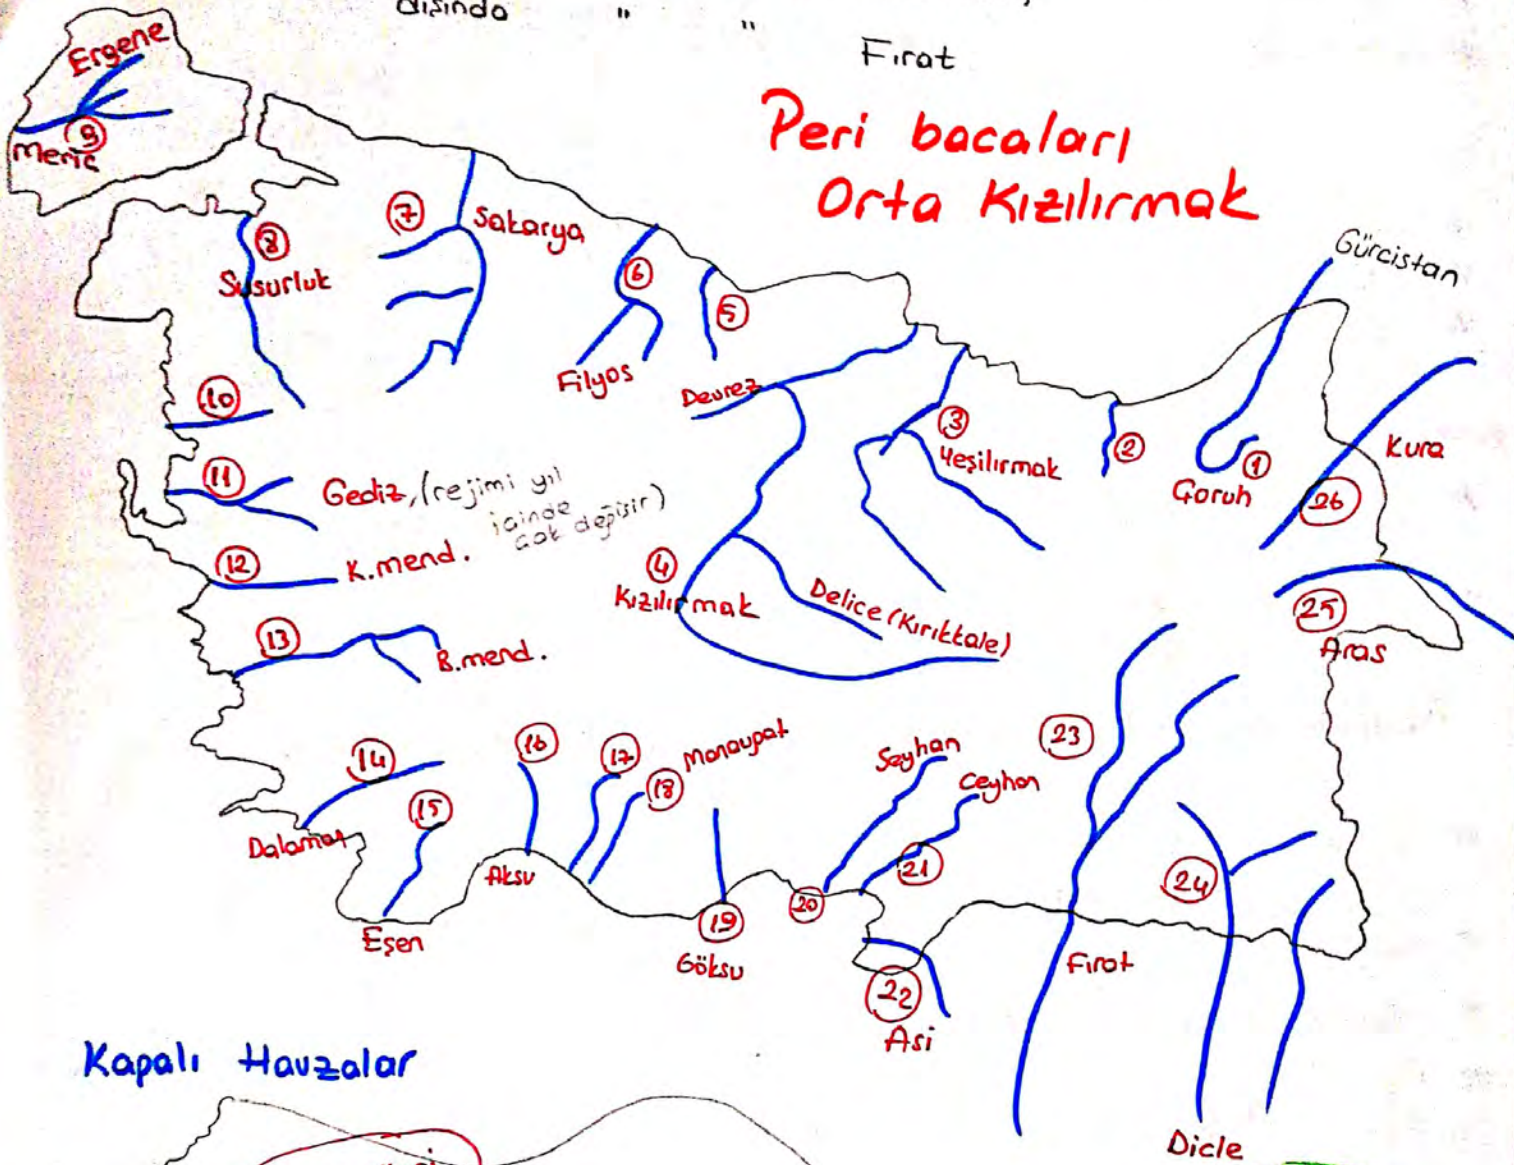 dışında " "
Fırat
Peri bacaları
Orta Kızılırmak
Ergene
9
Meriç
7
Sakarya
8
Susurluk
6
5
Filyos
Devrez
Gürcistan
3
Yeşilırmak
2
1
Çoruh
Kura
26
10
11
Gediz, (rejimi yıl
içinde
çok değişir)
12
K.mend.
4
Kızılırmak
Delice (Kırıkkale)
25
Aras
13
B.mend.
14
Dalaman
15
Eşen
16
Aksu
17
18
Manavgat
19
Göksu
Seyhan
20
Ceyhan
21
22
Asi
23
Fırat
24
Dicle
Kapalı Havzalar